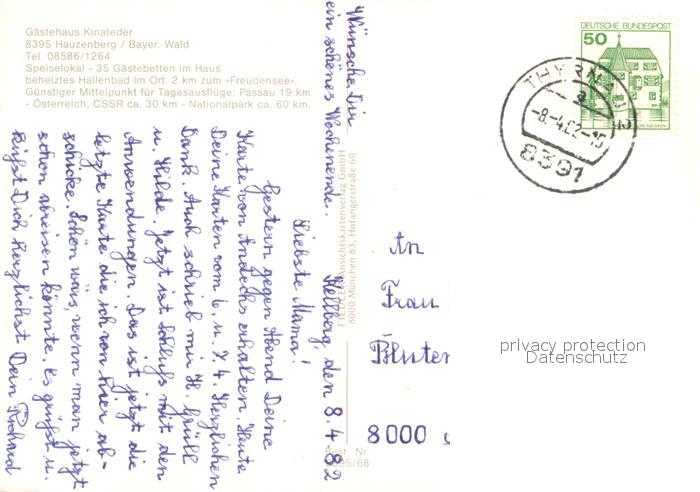 Gästehaus Kinateder
8395 Hauzenberg / Bayer. Wald
Tel. 08586/1264
Speiselokal - 35 Gästebetten im Haus
beheiztes Hallenbad im Ort. 2 km zum »Freudensee«.
Günstiger Mittelpunkt für Tagesausflüge: Passau 19 km
- Österreich, CSSR ca. 30 km - Nationalpark ca. 60 km.
Kellberg, den 8.4.82
Liebste Mama!
Gestern gegen Abend Deine
Karte von Andechs erhalten. Heute
Deine Karten vom 6. u. 7.4. Herzlichen
Dank. Auch schrieb mir H. Grüll
u. Hilde. Jetzt ist Schluß mit den
Anwendungen. Das ist jetzt die
letzte Karte die ich von hier ab-
schicke. Schön wärs, wenn man jetzt
schon abreisen könnte. Es grüßt u.
küßt Dich herzlichst Dein Richard
Wünsche Dir
ein schönes Wochenende.
FIEDLER Ansichtskartenverlag GmbH
8000 München 83, Hofangerstraße 60
Best. Nr
8395/68
An
Frau
Bluten
8000
DEUTSCHE BUNDESPOST
50
THYRNAU 2
a
-8.-4.82-16
8391
privacy protection
Datenschutz